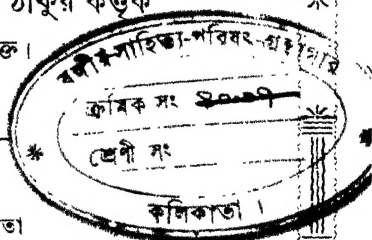 ঠাকুর কর্তৃক
ক্ত।
বঙ্গীয়-সাহিত্য-পরিষৎ-গ্রন্থাগার
ক্রমিক সং
শ্রেণী সং
কলিকাতা ।
তা